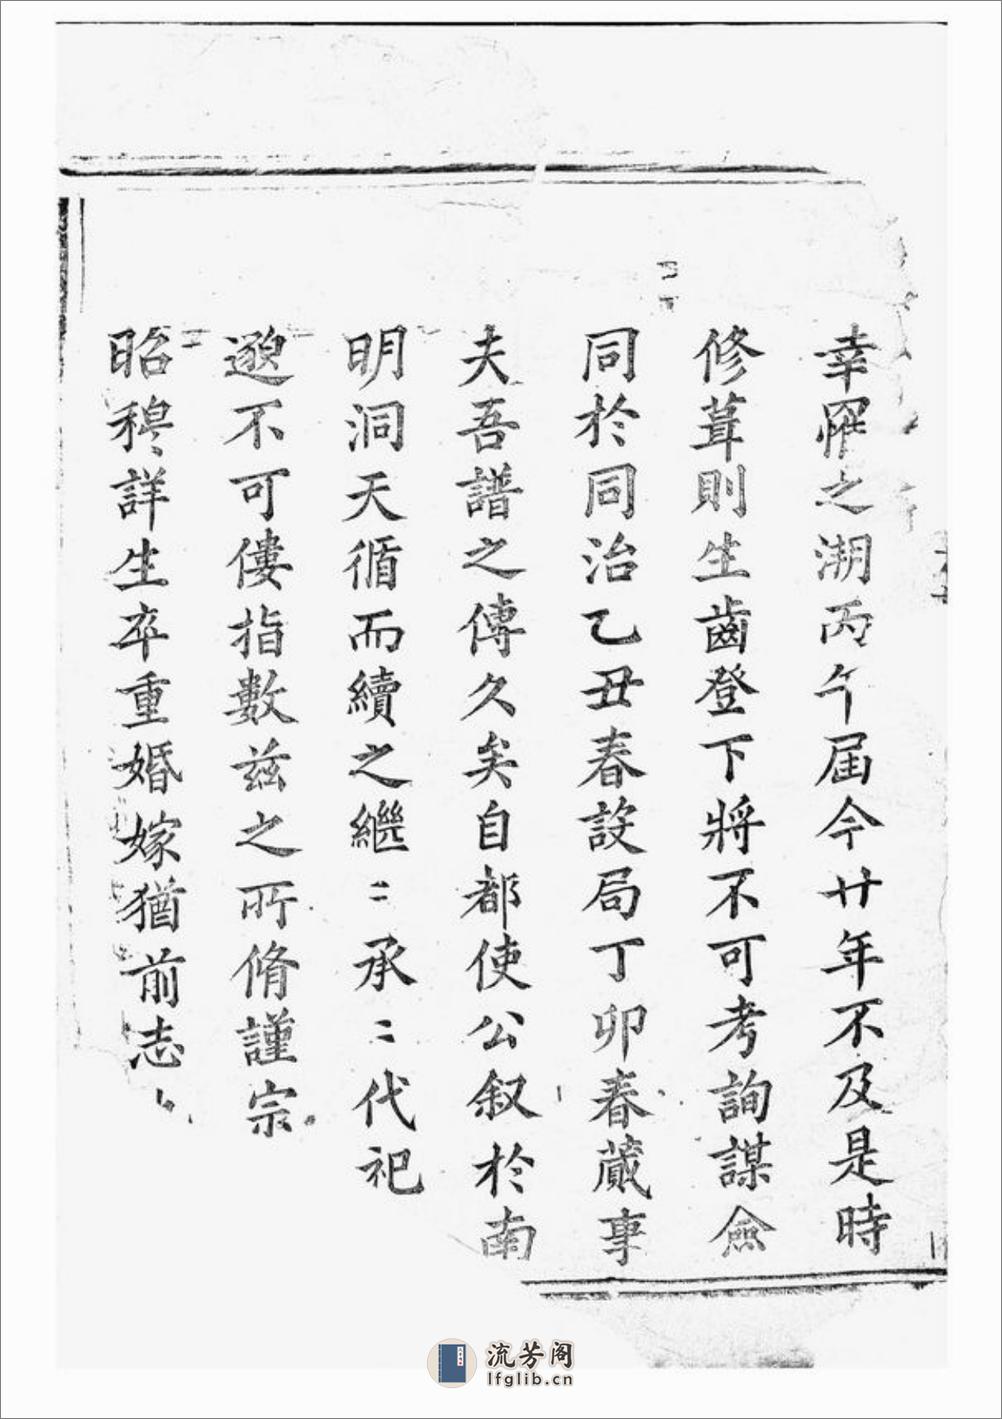 幸罹之溯丙午届今廿年不及是時
修葺則生齒登下將不可考詢謀僉
同於同治乙丑春設局丁卯春蕆事
夫吾譜之傳久矣自都使公叙於南
明洞天循而續之繼〻承〻代祀
邈不可僂指數兹之所脩謹宗
昭穆詳生卒重婚嫁猶前志
流芳阁
lfglib.cn